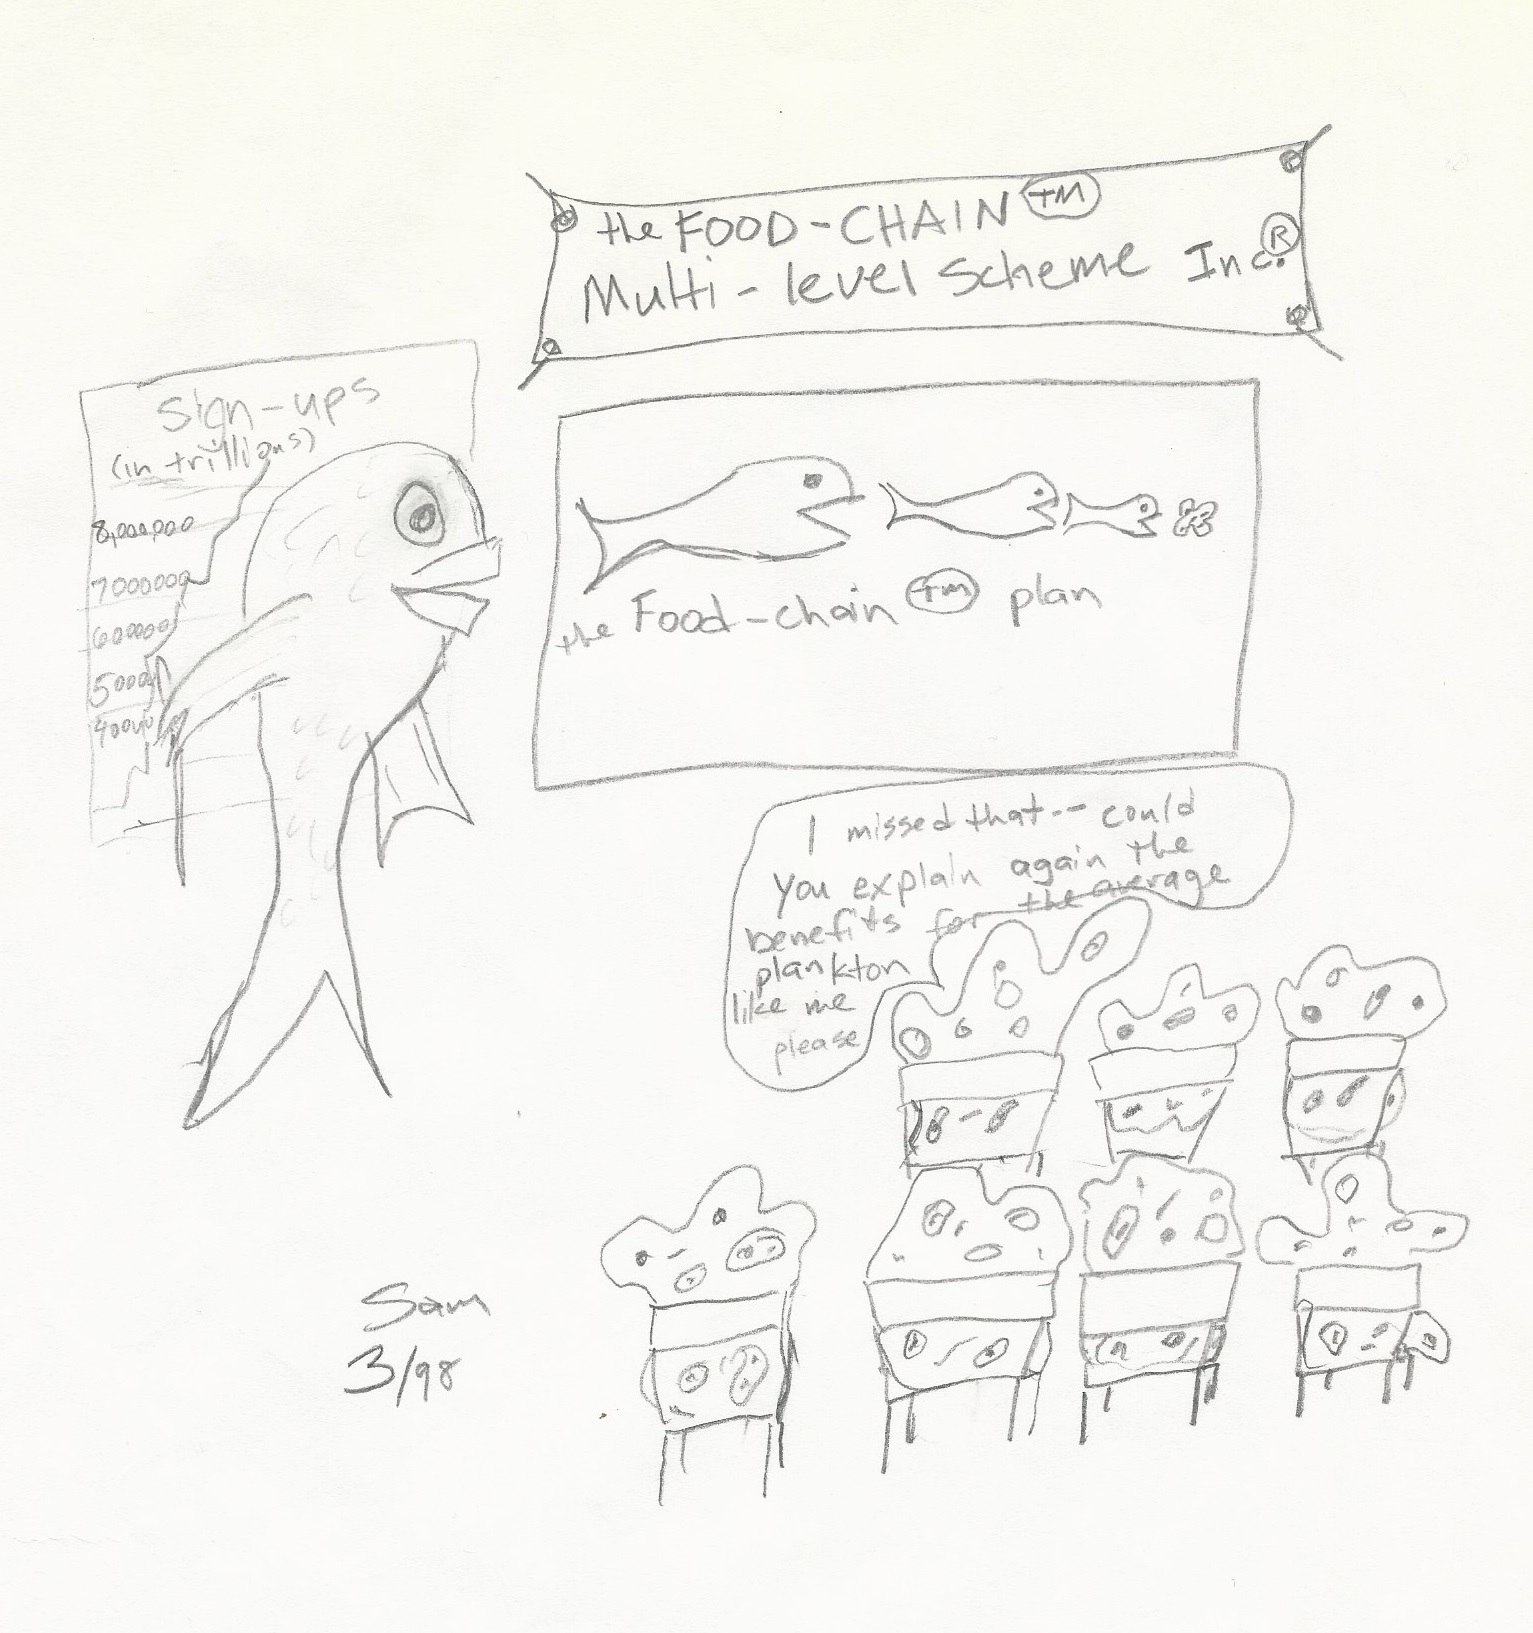 the FOOD-CHAIN TM
Multi-level Scheme Inc. ®
Sign-ups
(in trillions)
8,000,000
7000000
600000
5000
4000
the Food-chain TM plan
I missed that-- could
you explain again the
benefits for the average
plankton
like me
please
Sam
3/98